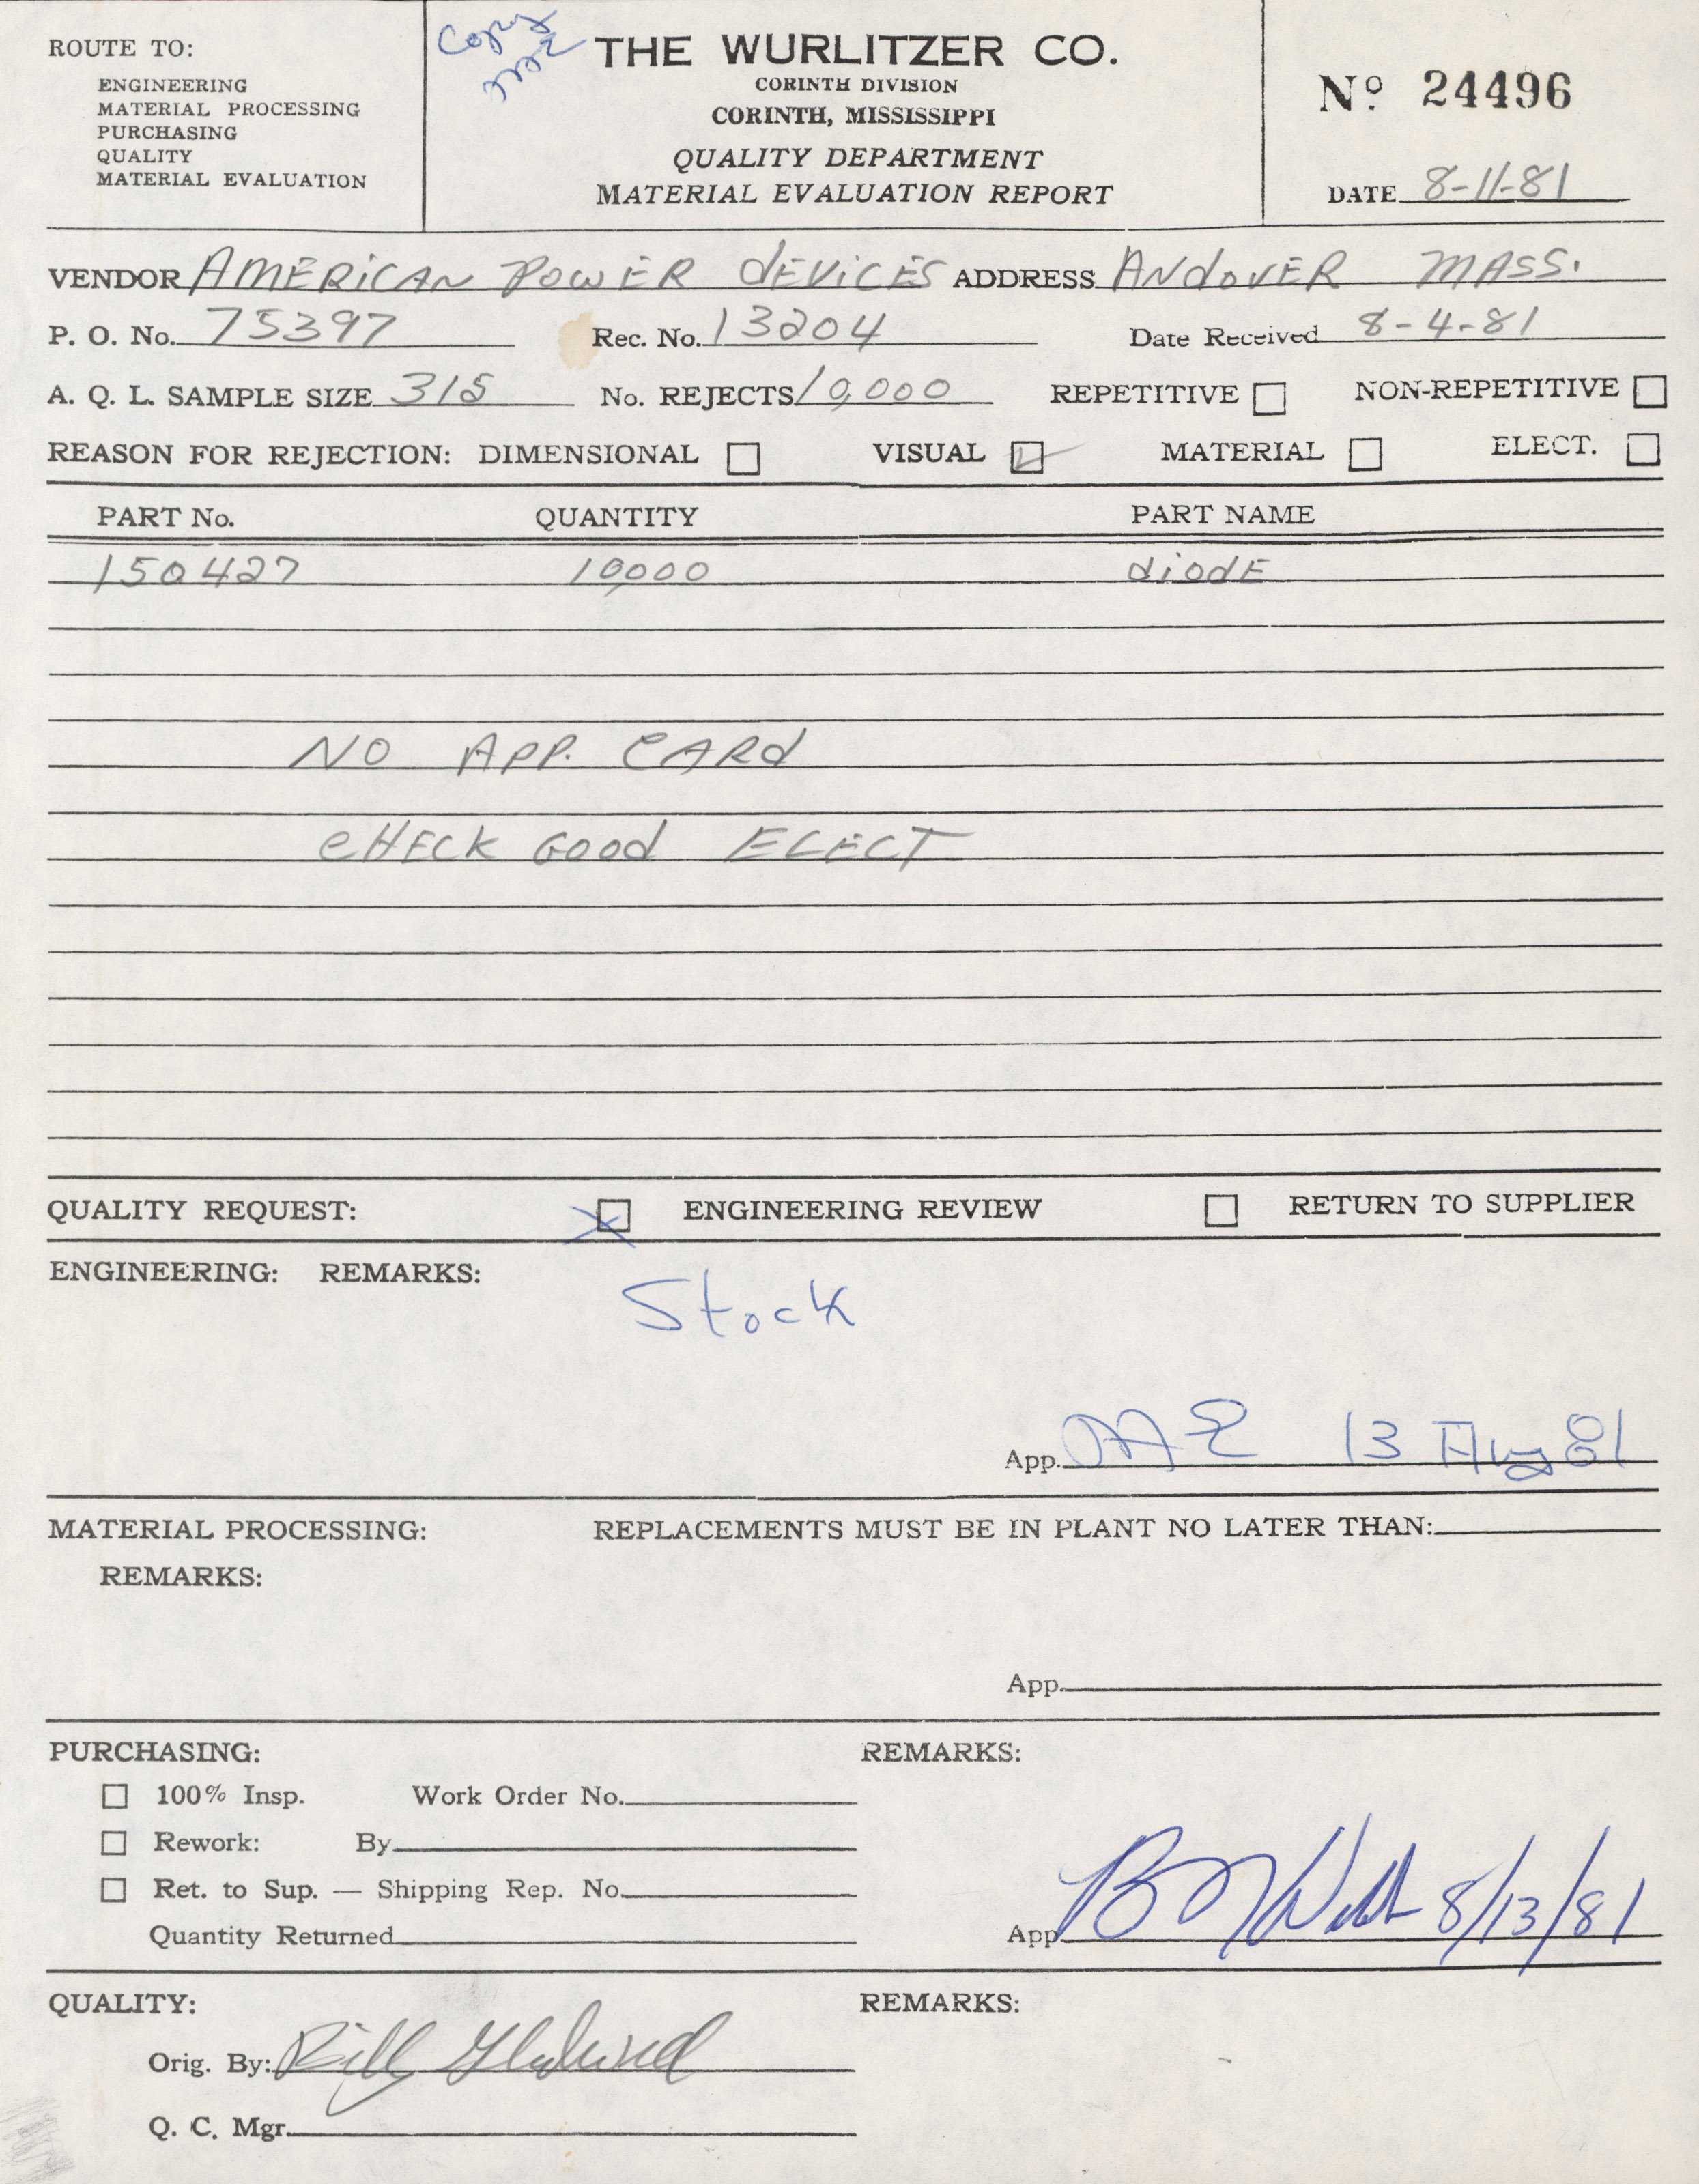 ROUTE TO:
ENGINEERING
MATERIAL PROCESSING
PURCHASING
QUALITY
MATERIAL EVALUATION
Copy
THE WURLITZER CO.
CORINTH DIVISION
CORINTH, MISSISSIPPI
QUALITY DEPARTMENT
MATERIAL EVALUATION REPORT
Nº 24496
DATE 8-11-81
VENDOR AMERICAN POWER dEVICES ADDRESS ANdOVER MASS.
P. O. No. 75397 Rec. No. 13204 Date Received 8-4-81
A. Q. L. SAMPLE SIZE 315 No. REJECTS 10,000 REPETITIVE NON-REPETITIVE
REASON FOR REJECTION: DIMENSIONAL VISUAL MATERIAL ELECT.
PART No. QUANTITY PART NAME
150427 10,000 diodE
NO APP. CARd
CHECK GOOd ELECT
QUALITY REQUEST: ENGINEERING REVIEW RETURN TO SUPPLIER
ENGINEERING: REMARKS:
Stock
App. 13 Aug 81
MATERIAL PROCESSING: REPLACEMENTS MUST BE IN PLANT NO LATER THAN:
REMARKS:
App.
PURCHASING: REMARKS:
100% Insp. Work Order No.
Rework: By
Ret. to Sup. — Shipping Rep. No.
Quantity Returned
App 8/13/81
QUALITY: REMARKS:
Orig. By: Billy
Q. C. Mgr.